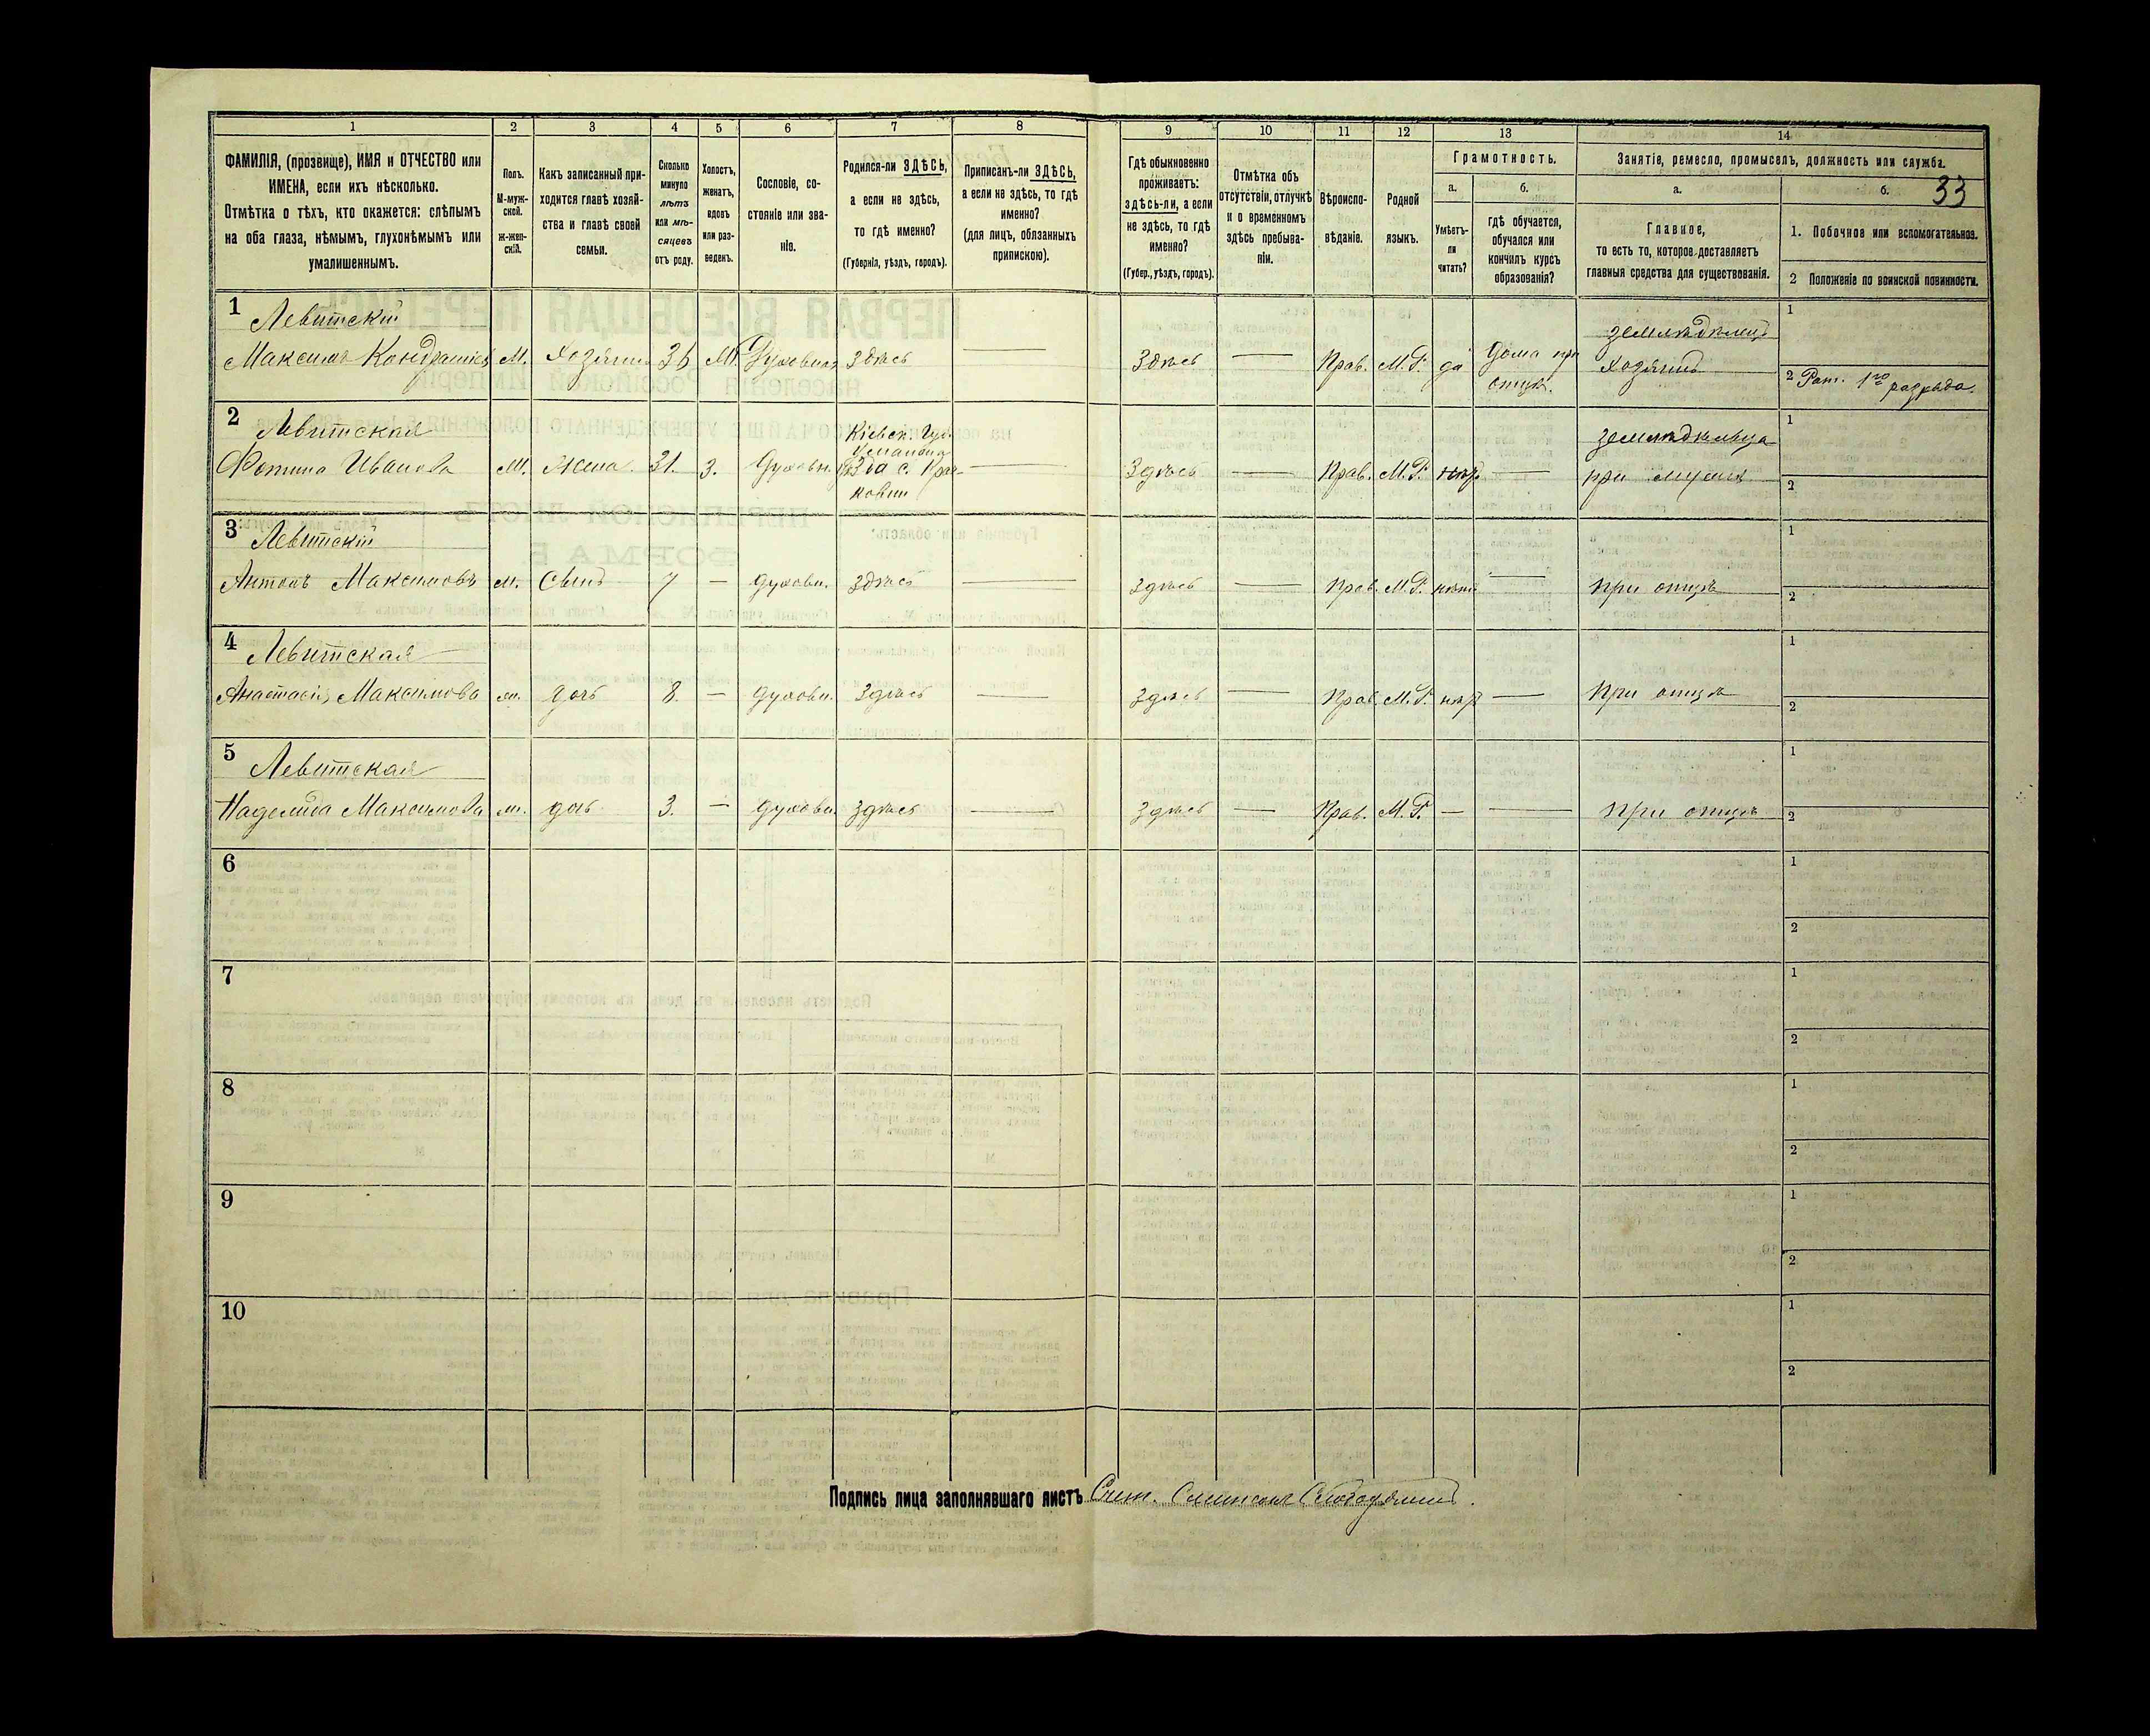 33
1 2 3 4 5 6 7 8 9 10 11 12 13 14
ФАМИЛІЯ, (прозвище), ИМЯ и ОТЧЕСТВО или
ИМЕНА, если ихъ нѣсколько.
Отмѣтка о тѣхъ, кто окажется: слѣпымъ
на оба глаза, нѣмымъ, глухонѣмымъ или
умалишеннымъ.
Полъ.
М-муж-
ской.
ж-жен-
скій.
Какъ записанный при-
ходится главѣ хозяй-
ства и главѣ своей
семьи.
Сколько
минуло
лѣтъ
или мѣ-
сяцевъ
отъ роду.
Холостъ,
женатъ,
вдовъ
или раз-
веденъ.
Сословіе, со-
стояніе или зва-
ніе.
Родился-ли ЗДѢСЬ,
а если не здѣсь,
то гдѣ именно?
(Губернія, уѣздъ, городъ).
Приписанъ-ли ЗДѢСЬ,
а если не здѣсь, то гдѣ
именно?
(для лицъ, обязанныхъ
припискою).
Гдѣ обыкновенно
проживаетъ:
здѣсь-ли, а если
не здѣсь, то гдѣ
именно?
(Губер., уѣздъ, городъ).
Отмѣтка объ
отсутствіи, отлучкѣ
и о временномъ
здѣсь пребыва-
ніи.
Вѣроиспо-
вѣданіе.
Родной
языкъ.
Грамотность.
а.
Умѣетъ-
ли
читать?
б.
гдѣ обучается,
обучался или
кончилъ курсъ
образованія?
Занятіе, ремесло, промыселъ, должность или служба.
а.
Главное,
то есть то, которое доставляетъ
главныя средства для существованія.
б.
1. Побочное или вспомогательное.
2 Положеніе по воинской повинности.
1 Левитскій земледѣлецъ 1
Максимъ М. Хозяинъ 36 М. здѣсь — Здѣсь — Прав. М.Р. да Дома при хозяинъ
отцѣ. 2 Рат. 1го разряда
2 Левитская Кіевск. Губ. 1
Иванова М. Жена. 31. З. Духовн. — Здѣсь — Прав. М.Р. — при мужѣ 2
3 Левитскій 1
Антонъ Максимовъ м. Сынъ 7 — духовн. здѣсь — здѣсь — Прав. М.Р. нѣтъ — при отцѣ 2
4 Левитская 1
Анастасія Максимова м. дочь 8. — духовн. здѣсь — здѣсь — Прав. М.Р. — при отцѣ 2
5 Левитская 1
Надежда Максимова м. дочь 3. — духовн. здѣсь — здѣсь — Прав. М.Р. — — при отцѣ 2
6 1
2
7 1
2
8 1
2
9 1
2
10 1
2
Подпись лица заполнявшаго листъ Счет.